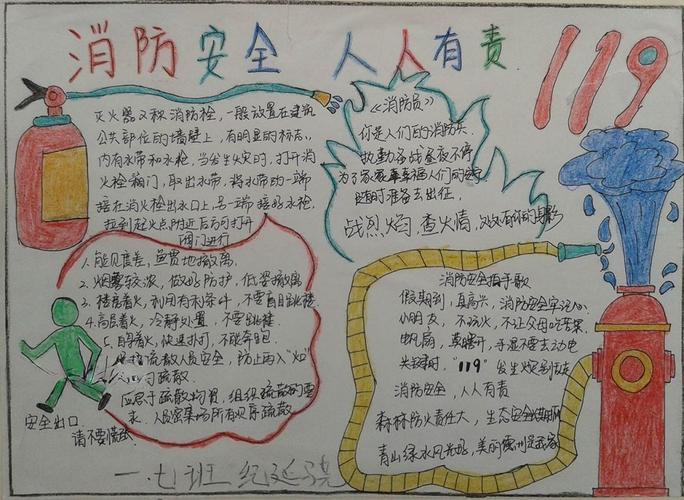 消防安全 人人有责
119
灭火器又称消防栓，一般放置在建筑
公共部位的墙壁上，有明显的标志，
内有水带和水枪，当发生火灾时，打开消
火栓箱门，取出水带，将水带的一端
接在消火栓出水口上，另一端接好水枪，
拉到起火点附近后方可打开
阀门进行
《消防员》
你是人们的消防兵
执勤备战昼夜不停
为了家
随时准备去出征，
战烈焰，查火情，处处有你的身影
1.能见度差，鱼贯地撤离
2.烟雾较浓，做好防护，低姿撤离
3.楼层着火，利用有利条件，不要盲目跳楼
4.高层着火，冷静处置，不要跳楼
5.自身着火，快速扑打，不能奔跑
疏散人员安全，防止再入"火"
口 疏散
应急于疏散物资，组织疏散的要
求，人员密集场所有贝序疏散
安全出口
请不要慌张
消防安全拍手歌
假期到，真高兴，消防安全牢记心
小朋友，不玩火，不让父母吃苦果
电风扇，莫掰开，手湿不要去动电
关键时，"119"发生火灾别
消防安全，人人有责
森林防火责任大，生态安全
青山绿水风光好，美丽 州是我家
一.七班 纪延骁